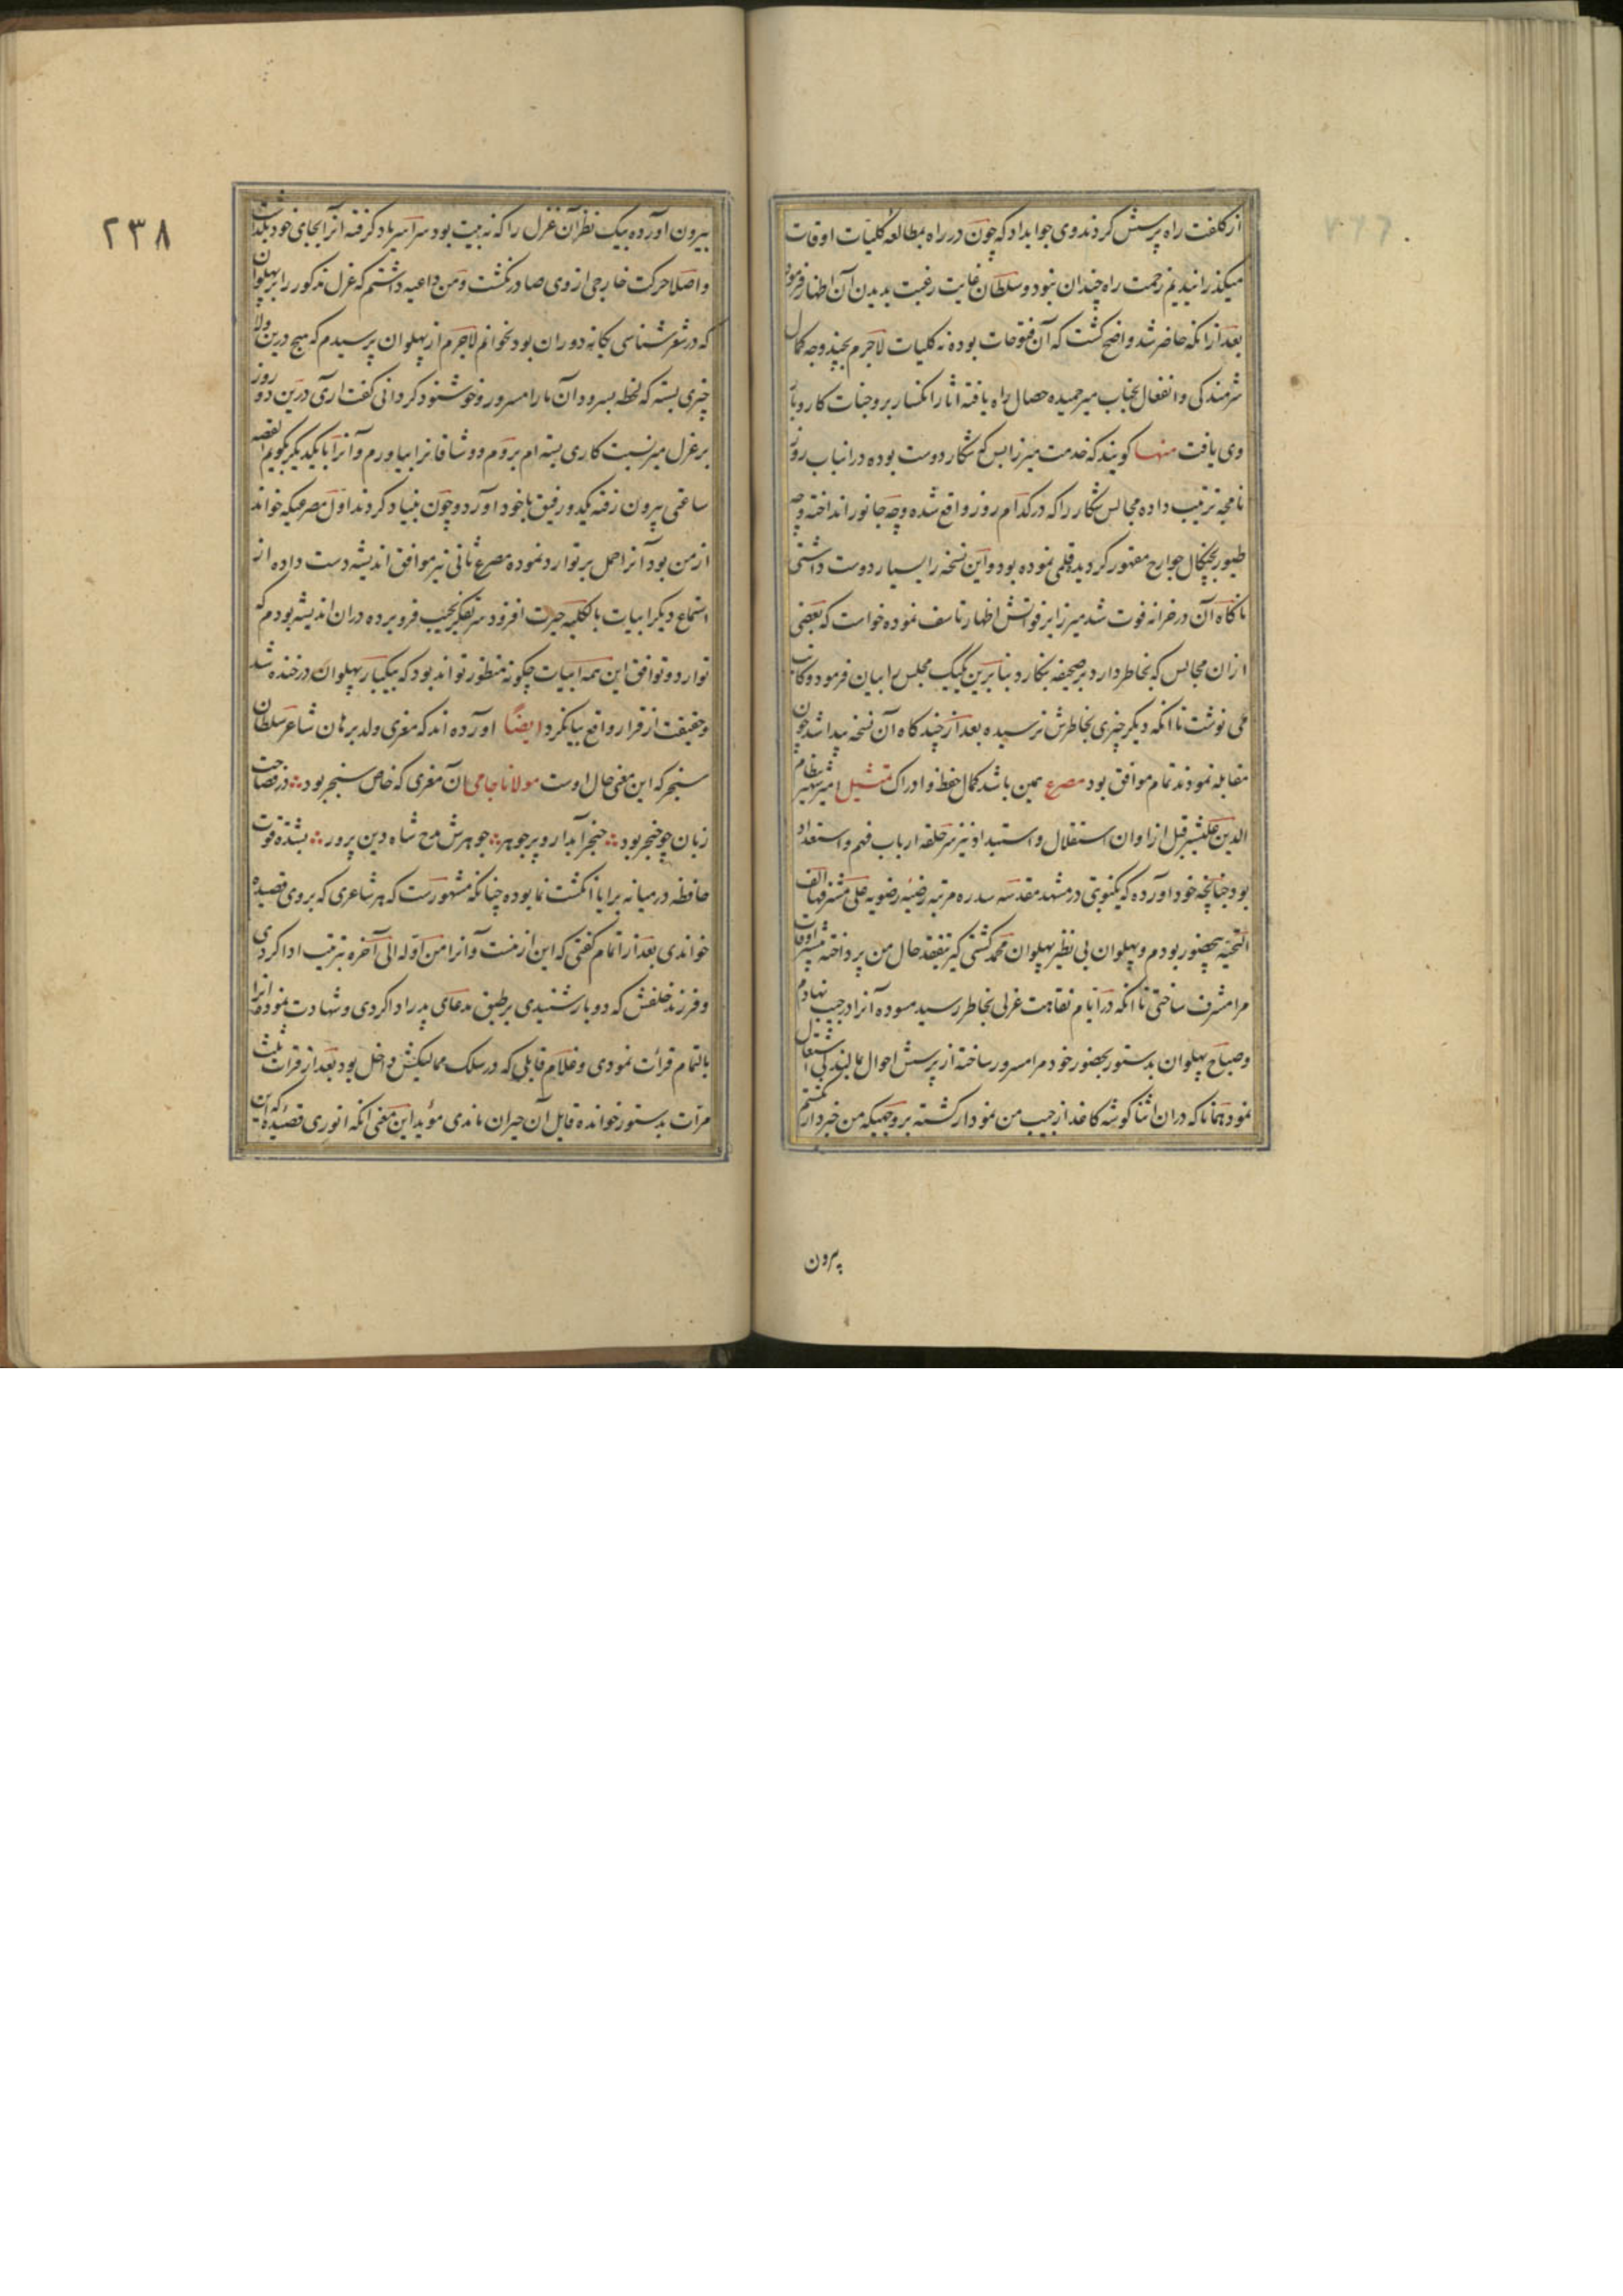 از کلفت راه پرسش کردند وی جوابداد که چون در راه بمطالعه کلیات اوقات
میکذرانیدیم زحمت راه چندان نبود و سلطان غایت رغبت بدیدن آن اظهار فرمود
بعد از انکه حاضر شد واضح کشت که آن فتوحات بوده نه کلیات لاجرم بچند وجه کمال
شرمندکی و انفعال بجناب میر حمیده خصال راه یافته اثار انکسار بر وجنات کار و بار
وی یافت منها کویند که خدمت میرزا بس که شکار دوست بوده درانباب روز
نامچه ترتیب داده مجالس شکار را که در کدام روز واقع شده و چه جانور انداخته و چه
طیور بچنکال جوارح مقهور کردیده قلمی نموده بود و این نسخه را بسیار دوست داشتی
ناکاه آن در خزانه فوت شد میرزا بر فوتش اظهار تاسف نموده خواست که بعضی
از ان مجالس که بخاطر دارد بر صحیفه بنکارد بنابرین یکیک مجلس را بیان فرمود و کاتب
می نوشت تا انکه دیکر چیزی بخاطرش نرسیده بعد از چند کاه آن نسخه پیدا شد چون
مقابله نمودند تمام موافق بود مصرع همین باشد کمال حفظ و ادراک تمثیل امیر شهیر نظام
الدین علیشیر قبل از اوان استقلال و استبداد نیز سر حلقه ارباب فهم و استعداد
بود چنانچه خود آورده که یکنوبتی در مشهد مقدسه سدره مرتبه رضیه رضویه علی مشرفها الف
التحیه بیحضور بودم و پهلوان بی نظیر پهلوان محمد کشتی کیر بتفقد حال من پرداخته بیشتر اوقات
مرا مشرف ساختی تا انکه در ایام نقاهت غزلی بخاطر رسید مسوده آنرا در جیب نهادم
و صباح پهلوان بدستور بحضور خود مرا مسرور ساخته از پرسش احوال ما لبندکی اشتغال
نمود همانا که دران اثنا کوشه کاغذ از جیب من نمودار کشته بر وجهیکه من خبردار نکشتم
بیرون
٢٣٨
بیرون آورده بیک نظر آن غزل را که نه بیت بود سراسر یاد کرفته انرا بجای خود بکذاشت
و اصلا حرکت خارجی از وی صادر نکشت و من داعیه داشتم که غزل مذکور را بر پهلوان
که در شعر شناسی یکانه دوران بود بخوانم لاجرم از پهلوان پرسیدم که هیچ درین ولا
چیزی بسته که لحظه بسرود آن ما را مسرور و خوشنود کردانی کفت اری درین دو روز
بر غزل میر نسبت کاری بسته ام بروم و وشاقانرا بیاورم و آنرا با یکدیکر بکویم القصه
ساعتی بیرون رفته یکدو رفیق با خود آورد و چون بنیاد کردند اول مصرعیکه خواند
از من بود آنرا حمل بر توارد نموده مصرع ثانی نیز موافق اندیشه دست داده از
استماع دیکر ابیات بالکلیه حیرت افزود سر تفکر بجیب فرو برده دران اندیشه بودم که
توارد و توافق این همه ابیات چکونه منظور تواند بود که بیکبار پهلوان در خنده شد
و حقیقت از قرار واقع بیان کرد ایضا آورده اند که معزی ولد برهان شاعر سلطان
سنجر که این معنی حال اوست مولانا جامی آن معزی که خاص سنجر بود در فصاحت
زبان چو خنجر بود خنجر آبدار و پر جوهر جوهرش مدح شاه دین پرور بشده قوت
حافظه در میانه برایا انکشت نما بوده چنانکه مشهورست که هر شاعری که بر وی قصیده
خواندی بعد از اتمام کفتی که این از منست و آنرا من اوله الی آخره بترتیب ادا کردی
و فرزند خلفش که دوبار شنیدی بر طبق مدعای پدر ادا کردی و شهادت نموده انرا
بالتمام قرائت نمودی و غلام قابلی که در سلک ممالیکش داخل بود بعد از قرات ثلث
مرات بدستور خوانده قایل آن حیران ماندی مؤید این معنی انکه انوری قصیده که این